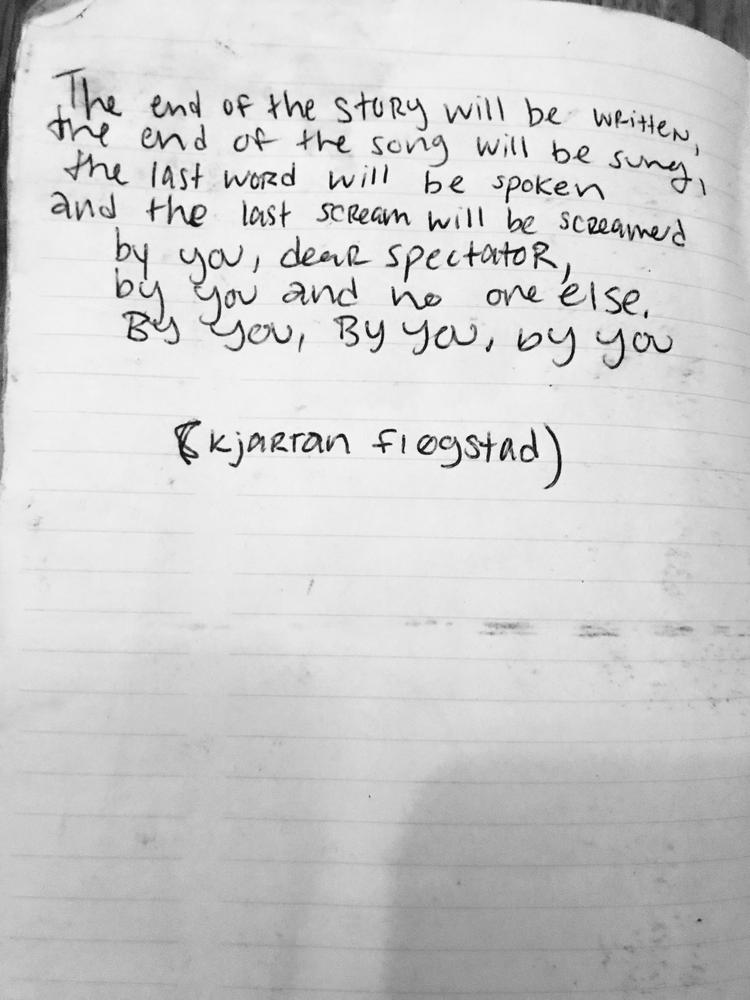 The end of the story will be written,
the end of the song will be sung,
the last word will be spoken
and the last scream will be screamed
by you, dear spectator,
by you and no one else.
By you, By you, by you
(kjartan fløgstad)